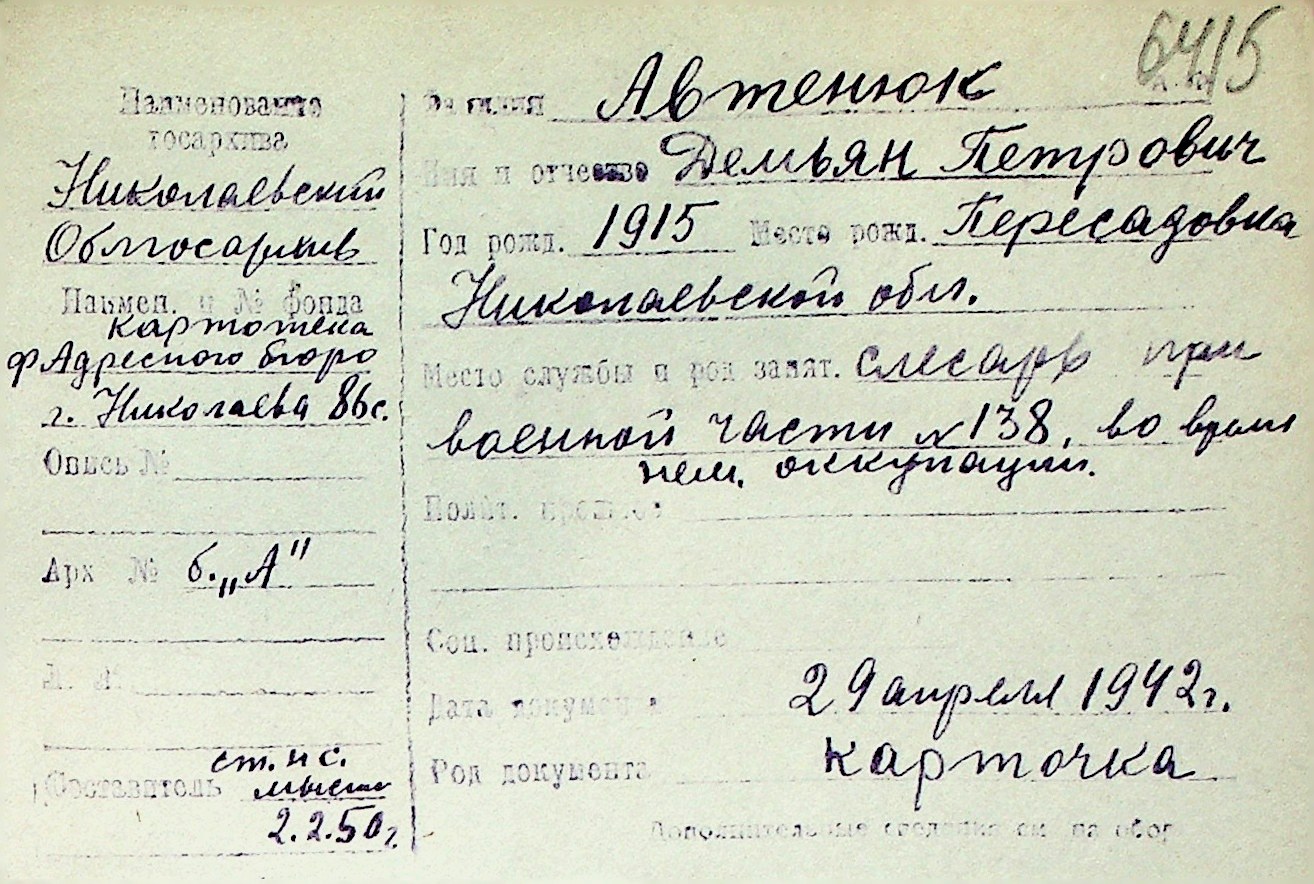 6415
Наименование
госархива
Николаевский
Облгосархив
Наимен. и № фонда
картотека
ф Адресного бюро
г. Николаева 86с.
Опись №
Арх № б. „А"
Л. л.
Составитель ст. н с.
2.2.50г.
Фамилия Автенюк
Имя и отчество Демьян Петрович
Год рожд. 1915 Место рожд. Пересадовка
Николаевской обл.
Место службы и род занят. слесарь при
военной части № 138, во время
нем. оккупации.
Полит. прошлое
Соц. происхождение
Дата документа 29 апреля 1942 г.
Род документа карточка
Дополнительные сведения см. на обор